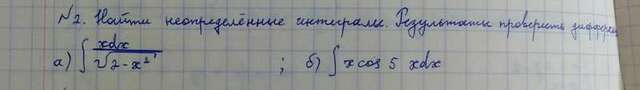 №2. Найти неопределённые интегралы. Результаты проверить дифферен
а) ∫ xdx / √2-x² ; б) ∫ x cos 5 xdx